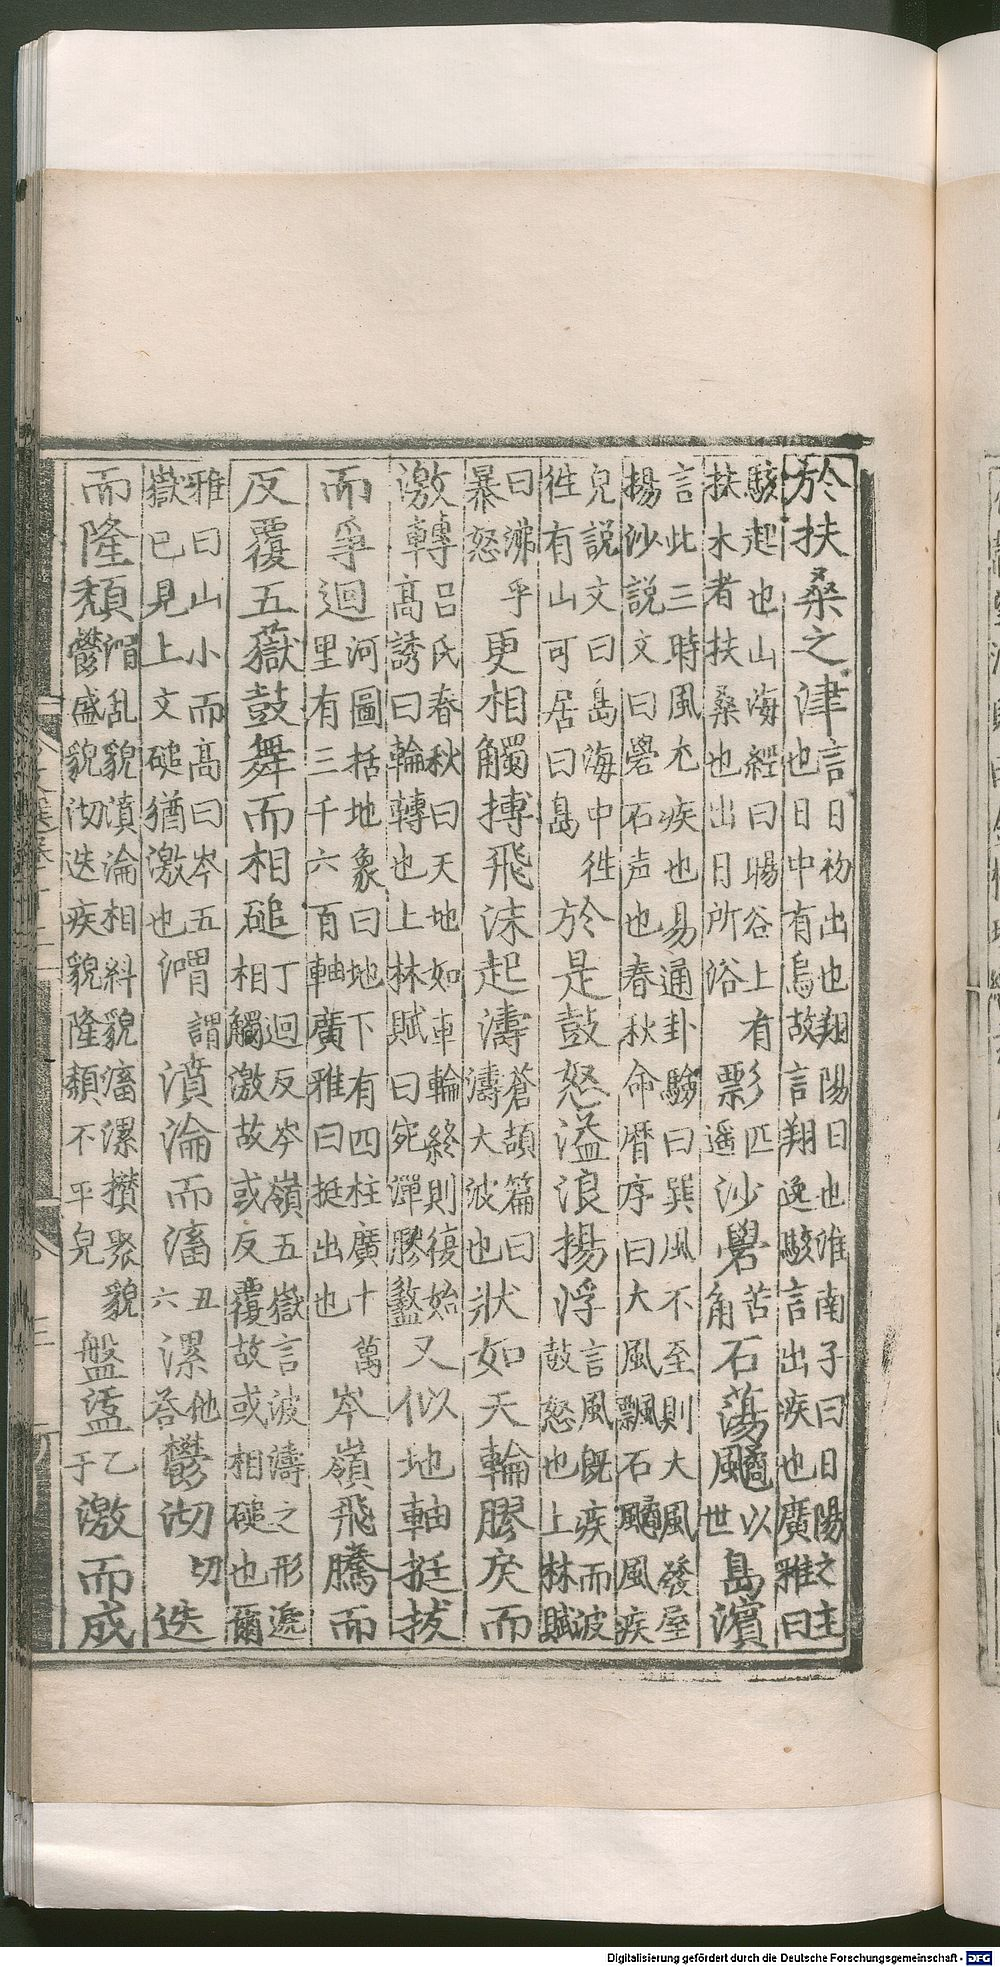 於扶桑之津言日初出也翔陽日也淮南子曰日陽之主也日中有烏故言翔逸駭言出疾也廣雅曰
駭起也山海經曰暘谷上有扶木者扶桑也出日所浴彯匹遥沙礐苦角石蕩䬍以世島濱
言此三時風尤疾也易通卦驗曰巽風不至則大風發屋揚沙說文曰礐石声也春秋命曆序曰大風飄石䬍風疾
皃說文曰島海中徃徃有山可居曰島於是鼓怒溢浪揚浮言風既疾而波鼓怒也上林賦
曰沸乎暴怒更相觸搏飛沫起濤蒼頡篇曰濤大波也狀如天輪膠戾而
激轉呂氏春秋曰天地如車輪終則復始高誘曰輪轉也上林賦曰宛潬膠盭又似地軸挺拔
而爭迴河圖括地象曰地下有四柱廣十萬里有三千六百軸廣雅曰挺出也岑嶺飛騰而
反覆五嶽鼓舞而相磓丁迴反岑嶺五嶽言波濤之形遞相觸激故或反覆故或相磓也爾
雅曰山小而高曰岑五嶽已見上文磓猶激也渭謂濆淪而滀丑六漯他荅鬱沏切迭
而隆頹渭乱貌濆淪相糾貌滀漯攅聚貌鬱盛貌沏迭疾貌隆頹不平皃盤盓乙于激而成
三
Digitalisierung gefördert durch die Deutsche Forschungsgemeinschaft - DFG